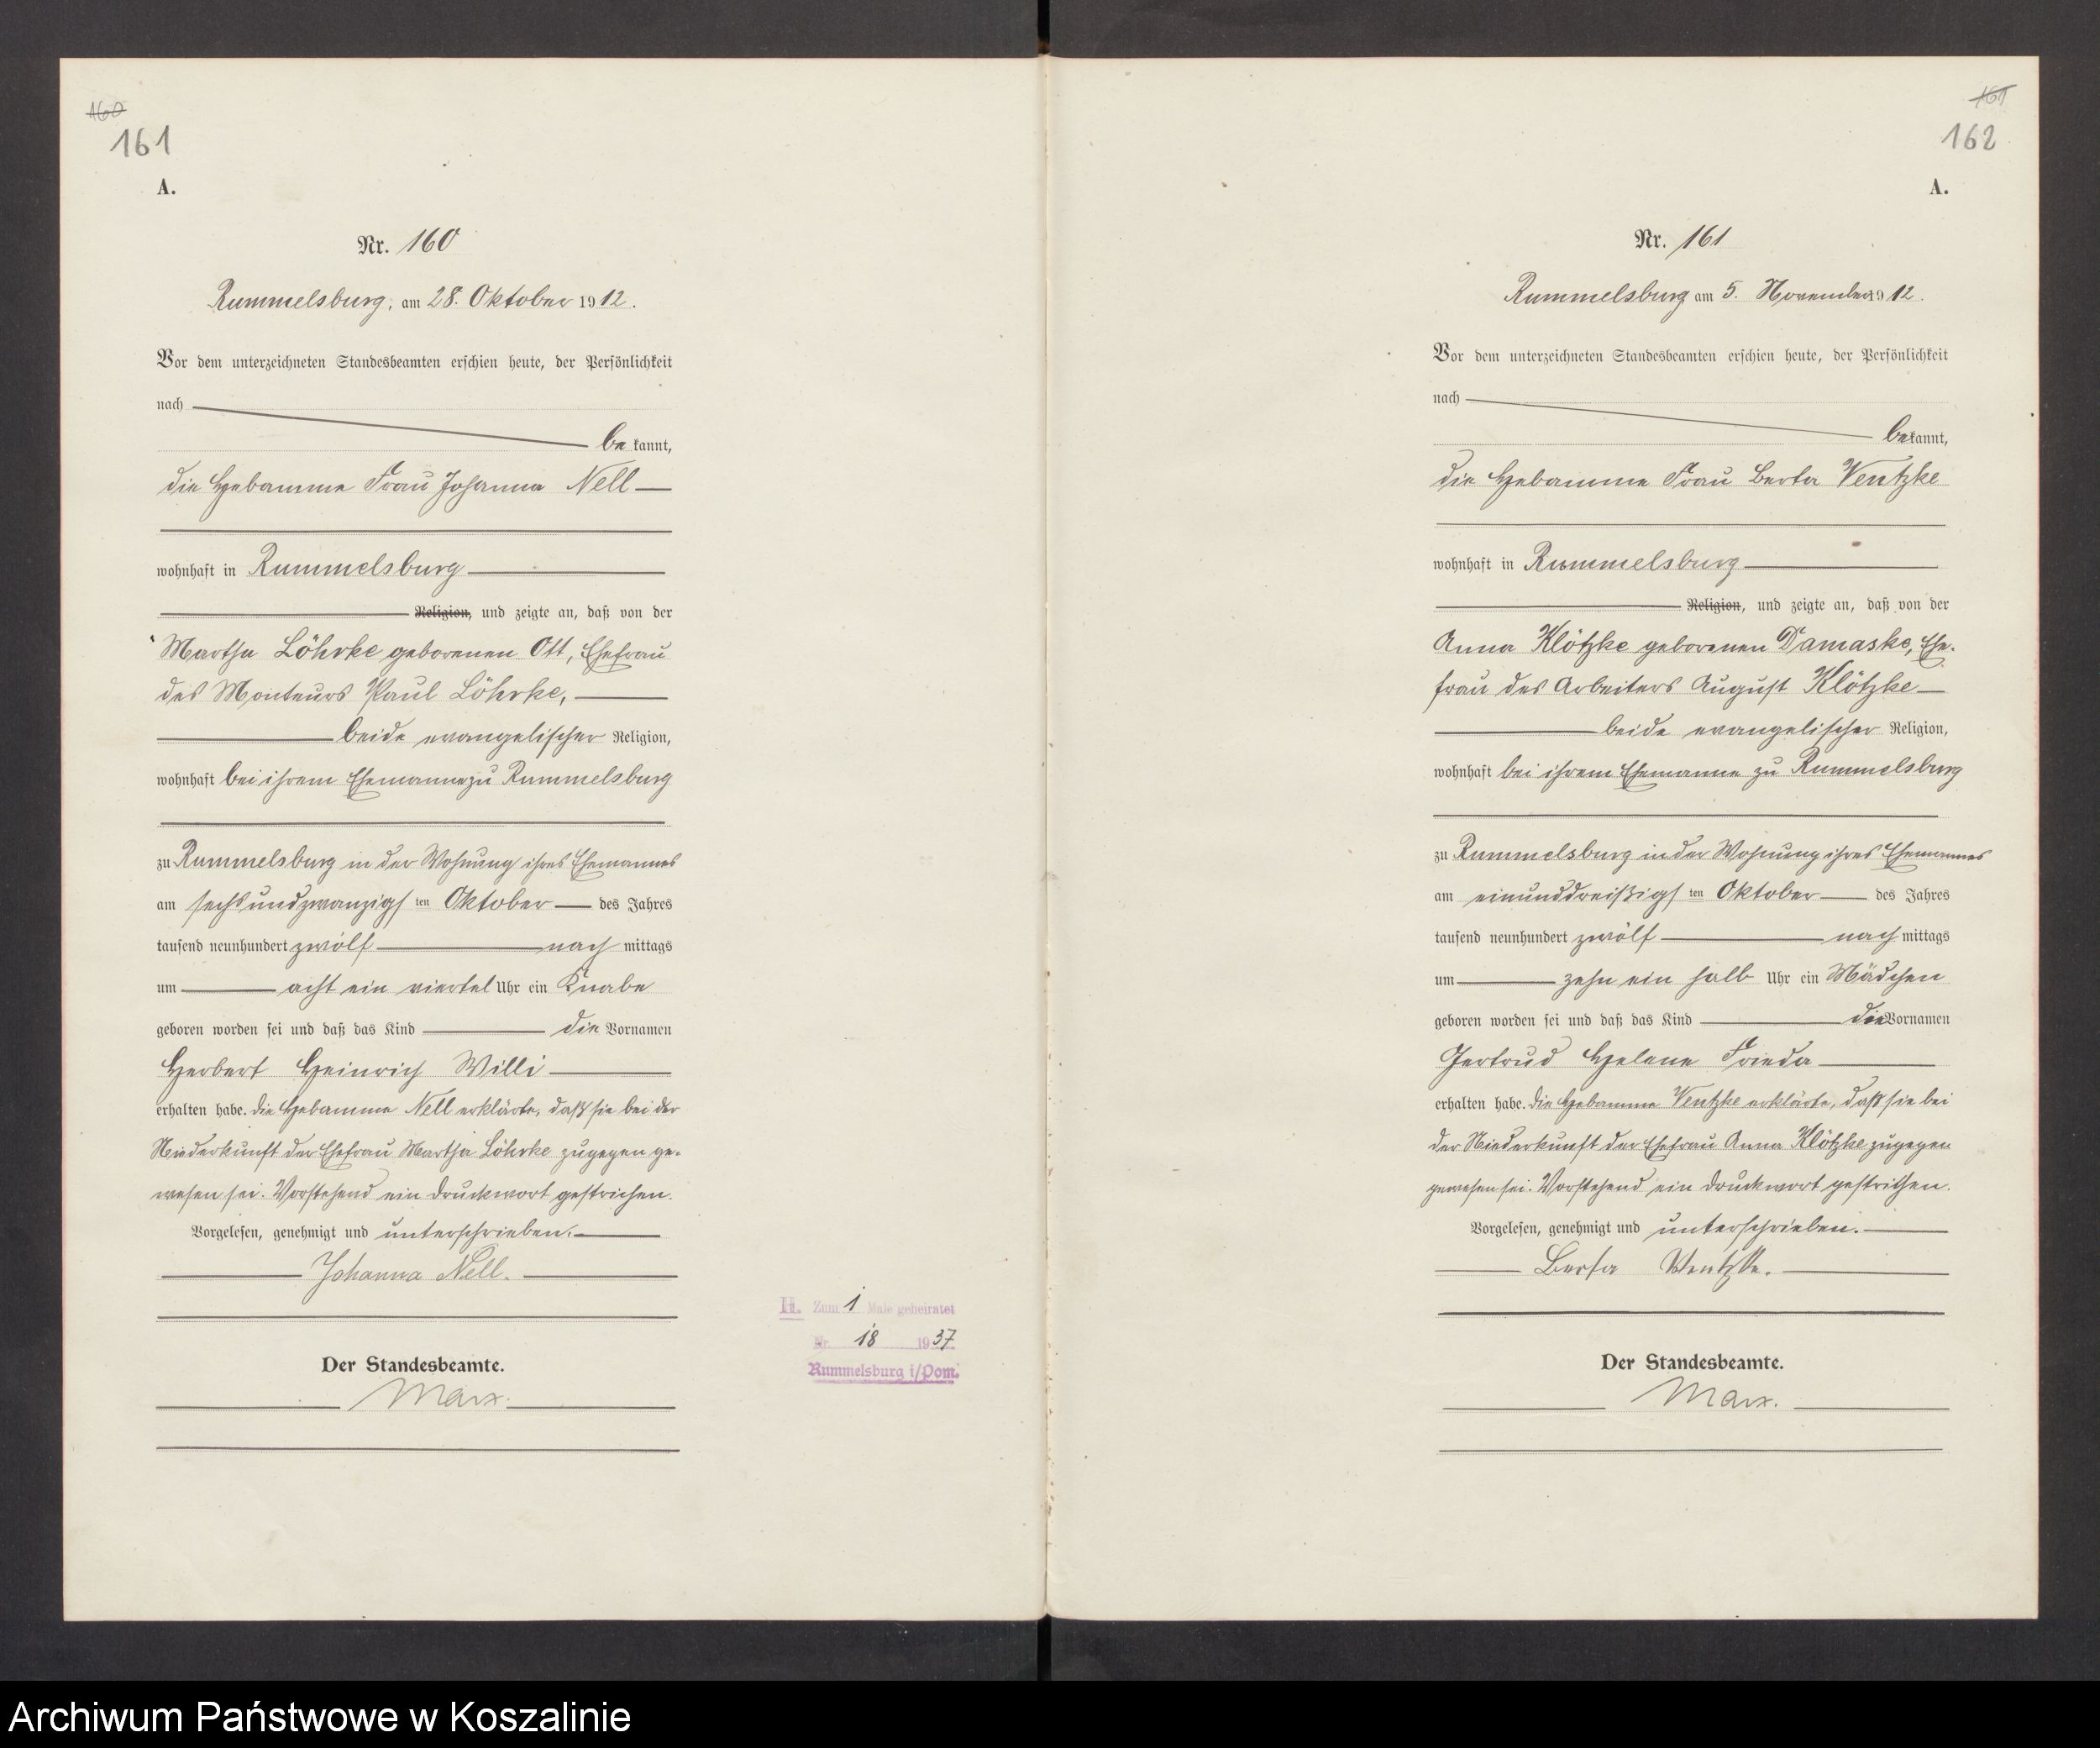 160
161
A.
Nr. 160
Rummelsburg, am 28. Oktober 1912.
Vor dem unterzeichneten Standesbeamten erschien heute, der Persönlichkeit
nach
bekannt,
die Hebamme Frau Johanna Nell
wohnhaft in Rummelsburg
Religion, und zeigte an, daß von der
Martha Löhrke geborenen Ott, Ehefrau
des Monteurs Paul Löhrke,
beide evangelischer Religion,
wohnhaft bei ihrem Ehemanne zu Rummelsburg
zu Rummelsburg in der Wohnung ihres Ehemannes
am sechsundzwanzigsten Oktober des Jahres
tausend neunhundert zwölf nachmittags
um acht ein viertel Uhr ein Knabe
geboren worden sei und daß das Kind die Vornamen
Herbert Heinrich Willi
erhalten habe. Die Hebamme Nell erklärte, daß sie bei der
Niederkunft der Ehefrau Martha Löhrke zugegen ge-
wesen sei. Vorstehend ein Druckwort gestrichen.
Vorgelesen, genehmigt und unterschrieben.
Johanna Nell.
Der Standesbeamte.
Marx.
H. Zum 1 Male geheiratet
Nr. 18 1937
Rummelsburg i/Pom.
161
162
A.
Nr. 161
Rummelsburg am 5. November 1912.
Vor dem unterzeichneten Standesbeamten erschien heute, der Persönlichkeit
nach
bekannt,
die Hebamme Frau Berta Ventzke
wohnhaft in Rummelsburg
Religion, und zeigte an, daß von der
Anna Klötzke geborenen Damaske, Ehe-
frau des Arbeiters August Klötzke
beide evangelischer Religion,
wohnhaft bei ihrem Ehemanne zu Rummelsburg
zu Rummelsburg in der Wohnung ihres Ehemannes
am einunddreißigsten Oktober des Jahres
tausend neunhundert zwölf nachmittags
um zehn ein halb Uhr ein Mädchen
geboren worden sei und daß das Kind die Vornamen
Gertrud Helene Frieda
erhalten habe. Die Hebamme Ventzke erklärte, daß sie bei
der Niederkunft der Ehefrau Anna Klötzke zugegen
gewesen sei. Vorstehend ein Druckwort gestrichen.
Vorgelesen, genehmigt und unterschrieben.
Berta Ventzke.
Der Standesbeamte.
Marx.
Archiwum Państwowe w Koszalinie